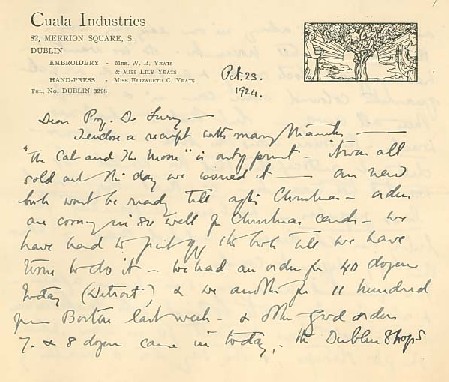 Cuala Industries
82, MERRION SQUARE, S
DUBLIN
EMBROIDERY - MRS. W. B. YEATS
& MISS LILY YEATS
HAND-PRESS - MISS ELIZABETH C. YEATS
TEL. No. DUBLIN
Oct. 23.
1924.
Dear Prof. De Lury —
I enclose a receipt with many thanks —
"The Cat and The Moon" is out of print it was all
sold out the day we issued it — our new
book won't be ready till after Christmas — orders
are coming in so well for Christmas cards — we
have had to put off the book till we have
time to do it — we had an order for 40 dozen
today (Detroit) & another for 11 hundred
from Boston last week — & other good orders
7 & 8 dozen came in today. The Dublin Shops